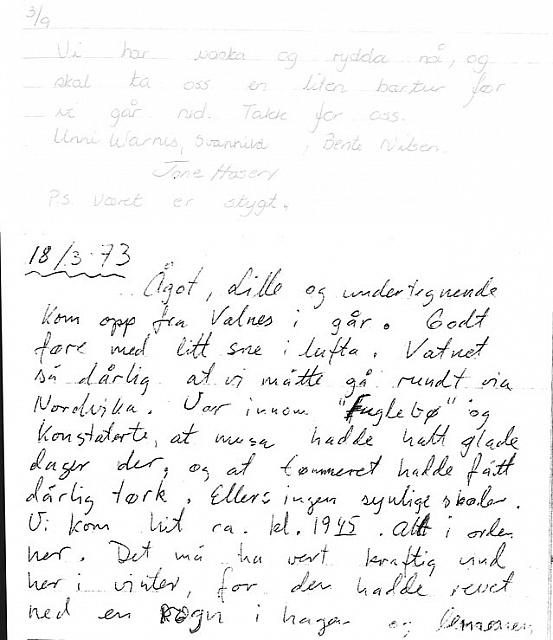 3/9
Vi har vaska og rydda nå, og
skal ta oss en liten bærtur før
vi går ned. Takk for oss.
Unni Warnis, Svannild, Bente Nilsen.
Tone
P.S. Været er stygt.
18/3-73
Ågot, Lille og undertegnende
kom opp fra Valnes i går. Godt
føre med litt snø i lufta. Vatnet
så dårlig at vi måtte gå rundt via
Nordvika. Var innom "Fuglebø" og
konstaterte, at musa hadde hatt glade
dager der, og at tømmeret hadde fått
dårlig tørk. Ellers ingen synlige skader.
Vi kom hit ca. kl. 1945. Alt i orden
her. Det må ha vert kraftig vind
her i vinter, for den hadde revet
ned en rogn i hagen og